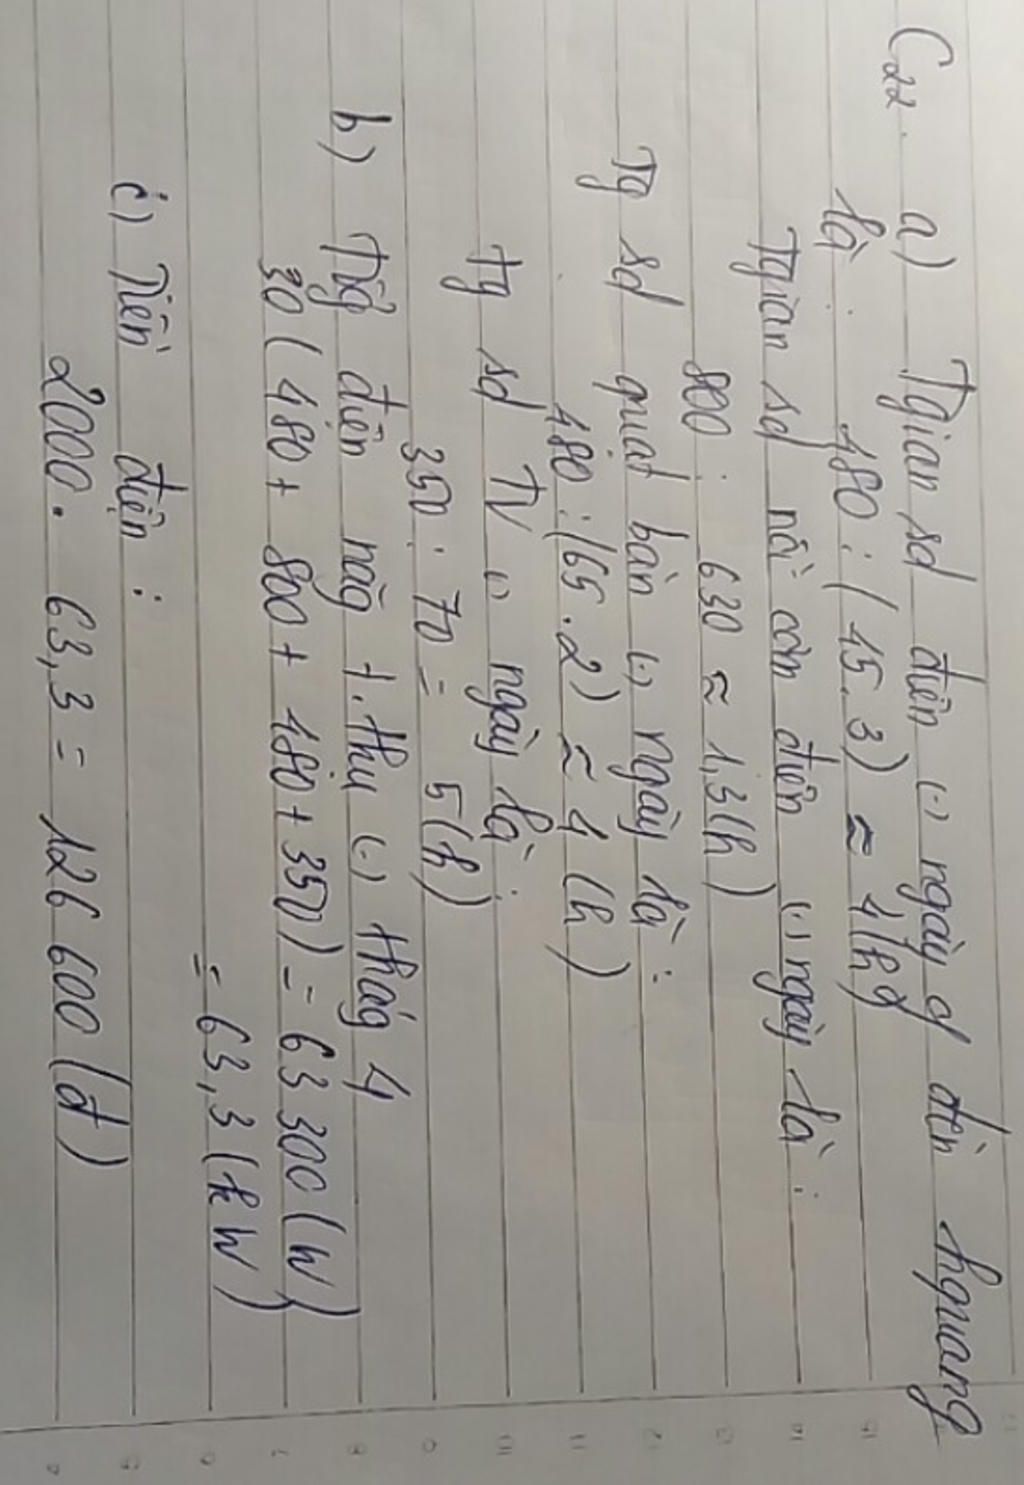 C22. a) Tgian sd điện (.) ngày of đèn hquang
là : 480 : ( 45.3) ≈ 4(h)
Tgian sd nồi cơm điện (.) ngày là :
800 : 630 ≈ 1,3(h)
Tg sd quạt bàn (.) ngày là :
480 : (65.2) ≈ 4 (h)
Tg sd TV (.) ngày là :
350 : 70 = 5(h)
b) Tổg điện năg t.thụ (.) thág 4
30 ( 480 + 800 + 480 + 350) = 63 300 (W)
= 63,3 (kW)
c) Tiền điện :
2000. 63,3 = 126 600 (đ)